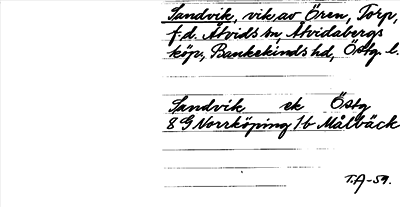 Sandvik, vik av Ören, Torp,
f.d. Åtvids sn, Åtvidabergs
köp, Bankekinds hd, Östg. l.
Sandvik ek Östg
8 G Norrköping 1b Målbäck
T.A-59.